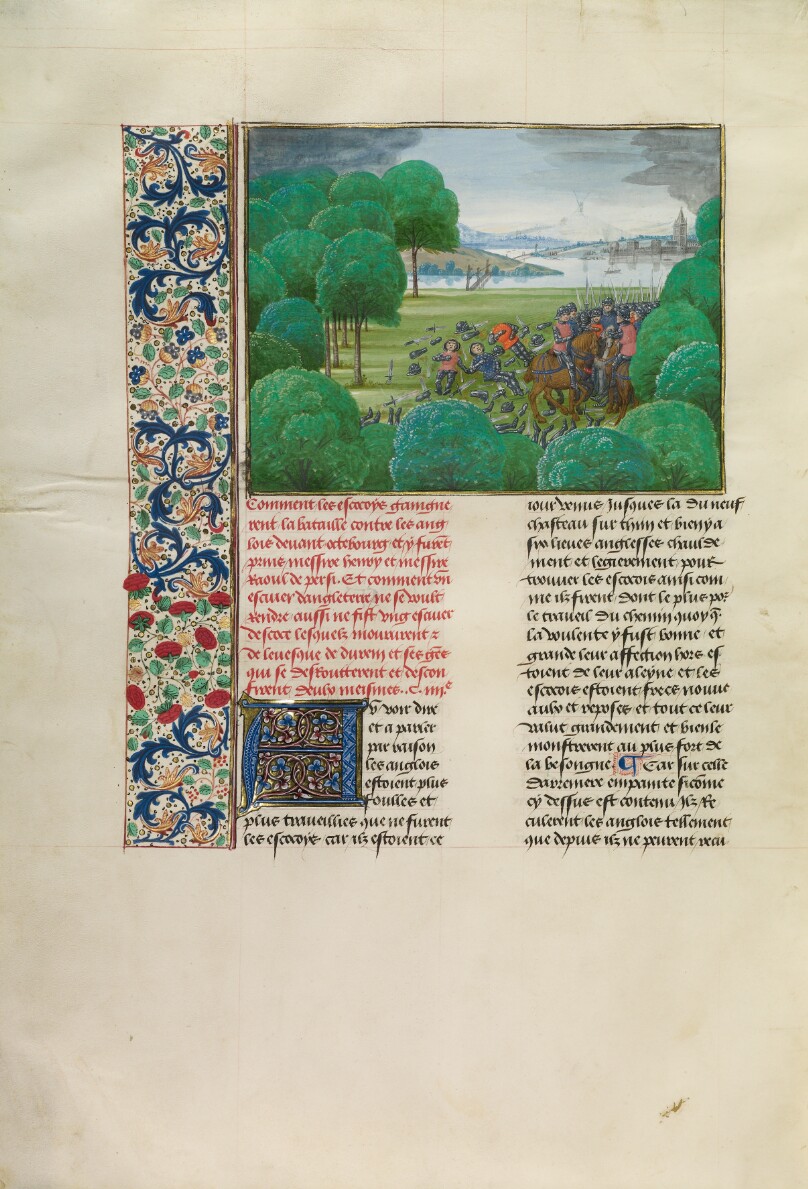 Comment les escocoys gaingne
rent la bataille contre les ang
lois devant octebourg et y furẽt
prins messire henry et messire
Raoul de persi. Et comment vn
escuier dangleterre ne se voult
Rendre aussi ne fist vng escuier
descoce lesquelz moururent z
de leuesque de durem et ses gẽs
qui se desroutterent et descon
firent deulx meismes.. C. iiiie
A v voir dire
et a parler
par raison
les anglois
estoient plus
foulles et
plus traueillies que ne furent
les escocoys car ilz estoient ce
iour venus Jusques la du neuf
chasteau sur thin et bien y a
lieues anglesses chaulde
ment et legierement pour
trouuer les escocois ainsi com
me ilz firent dont le plus por
le traueil du chemin quoy q̃
la voulente y fust bonne et
grande leur affection hors es
toient de leur aleyne et les
escocois estoient frecs nouue
aulx et reposes et tout ce leur
valut grandement et bien le
monstrerent au plus fort de
la besongne ¶ Car sur celle
darreniere empainte sicõme
cy dessus est contenu ilz Re
culerent les anglois tellement
que depuis ilz ne peurent recu